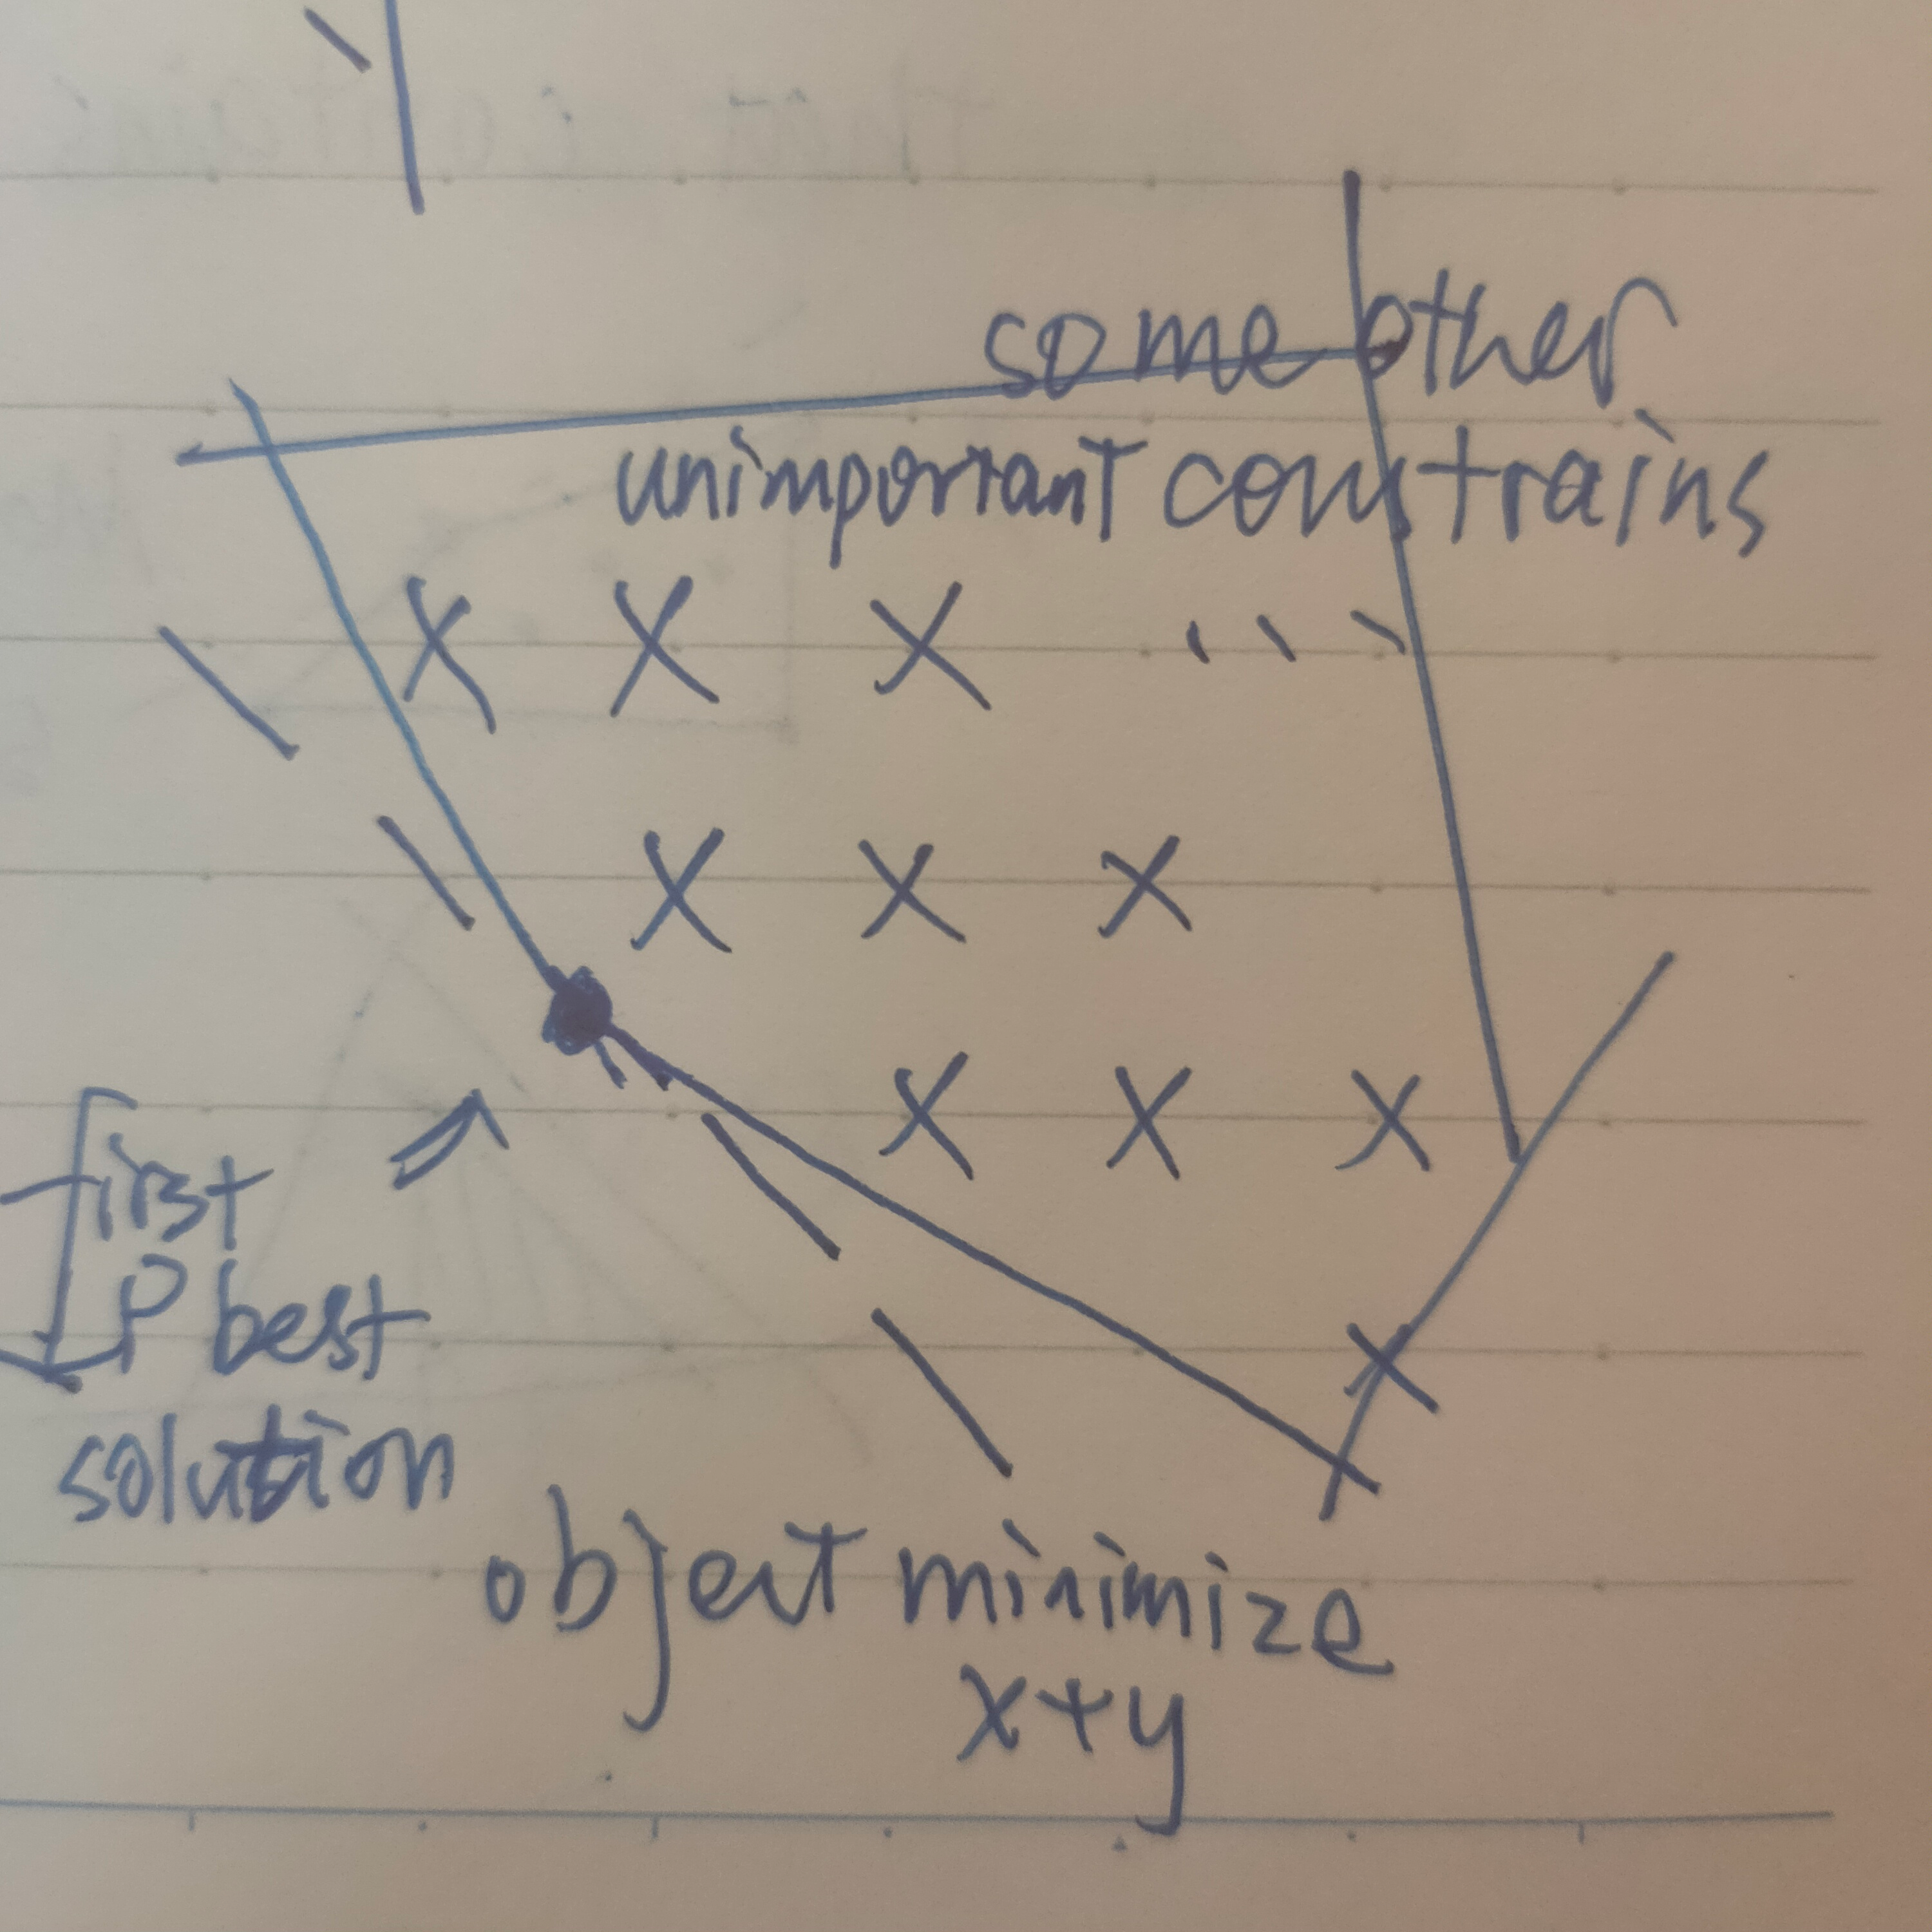 some other
unimportant constrains
X X X
X X X
X X X
X
first
P best
solution
object minimize
x+y